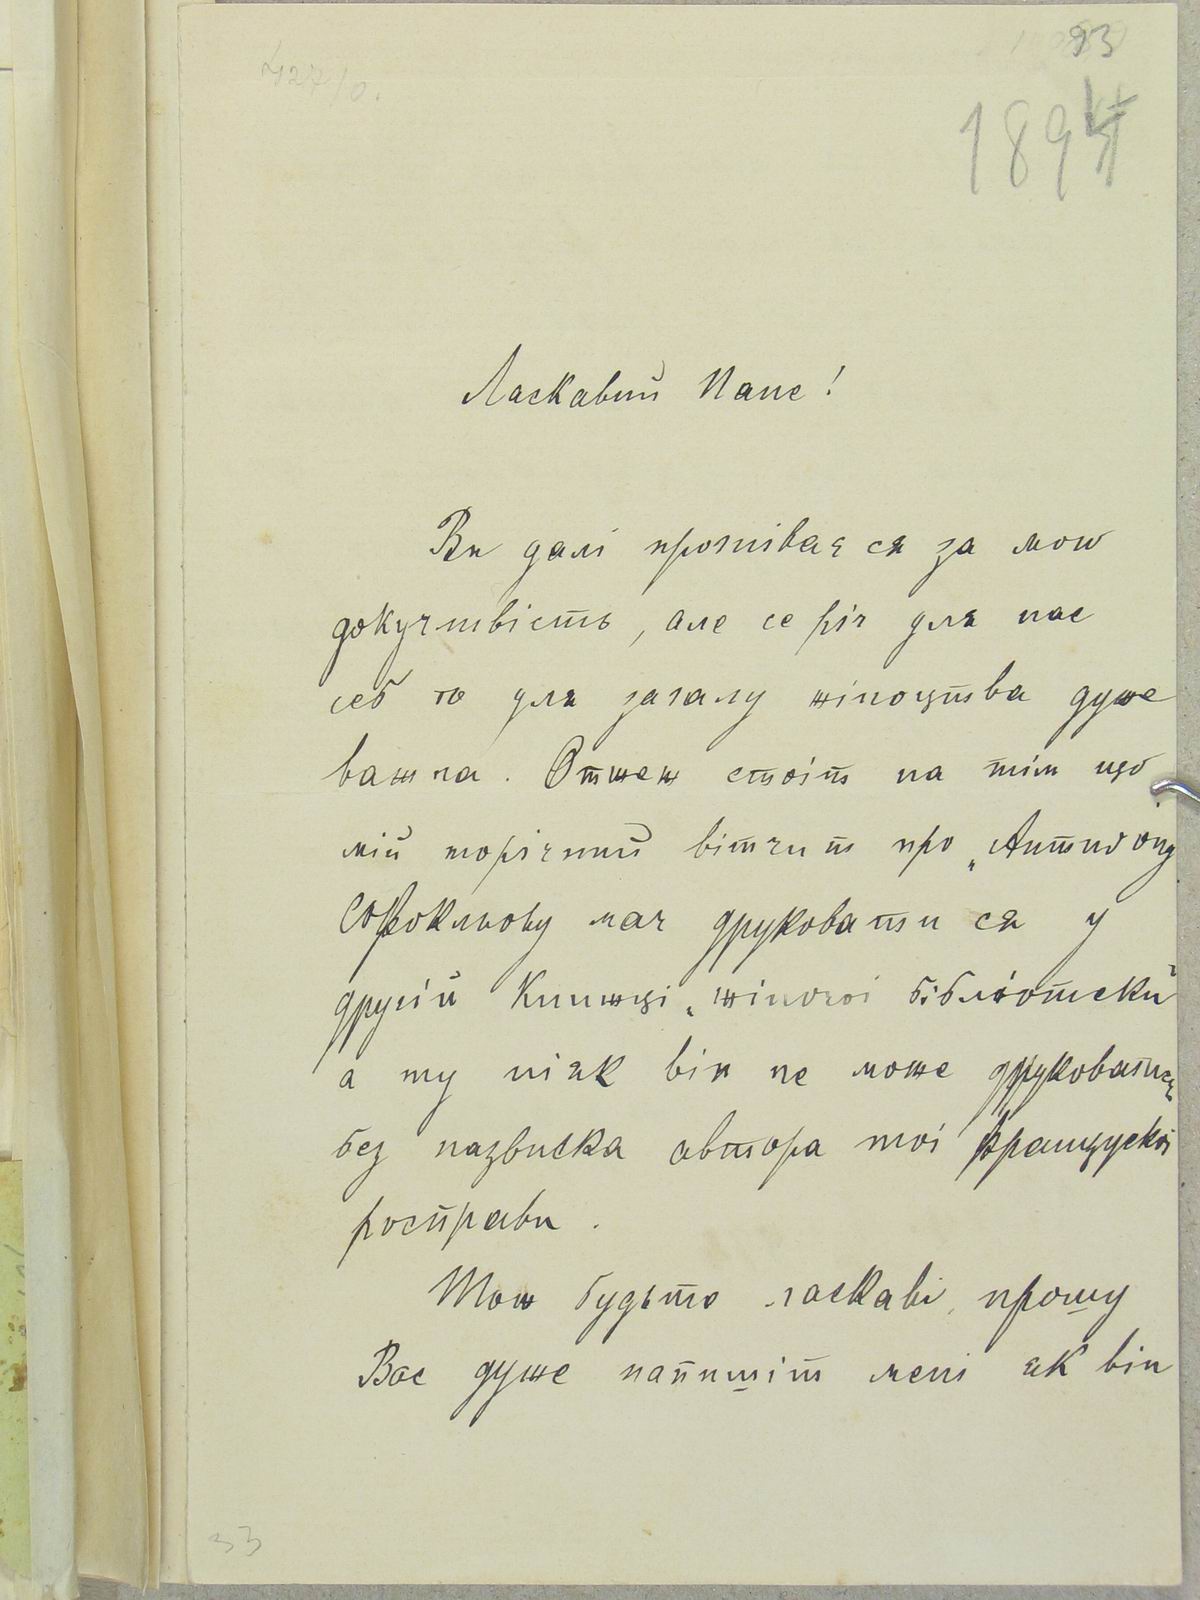 93
1894
427/0.
Ласкавий Пане!
Ви далі прогніваєся за мою
докучливість, але се річ для нас
себ то для загалу жіноцтва дуже
важна. Отжеж стоіт на тім що
мій торічний відчит про „Антиґону
Софокльову має друковати ся у
другій книжці „жіночоі бібліотеки"
а ту ніяк він не може друковатися
без назвиска автора тоі француcкоі
росправи.
Тож будьте ласкаві, прошу
Вас дуже напишіт мені як він
33